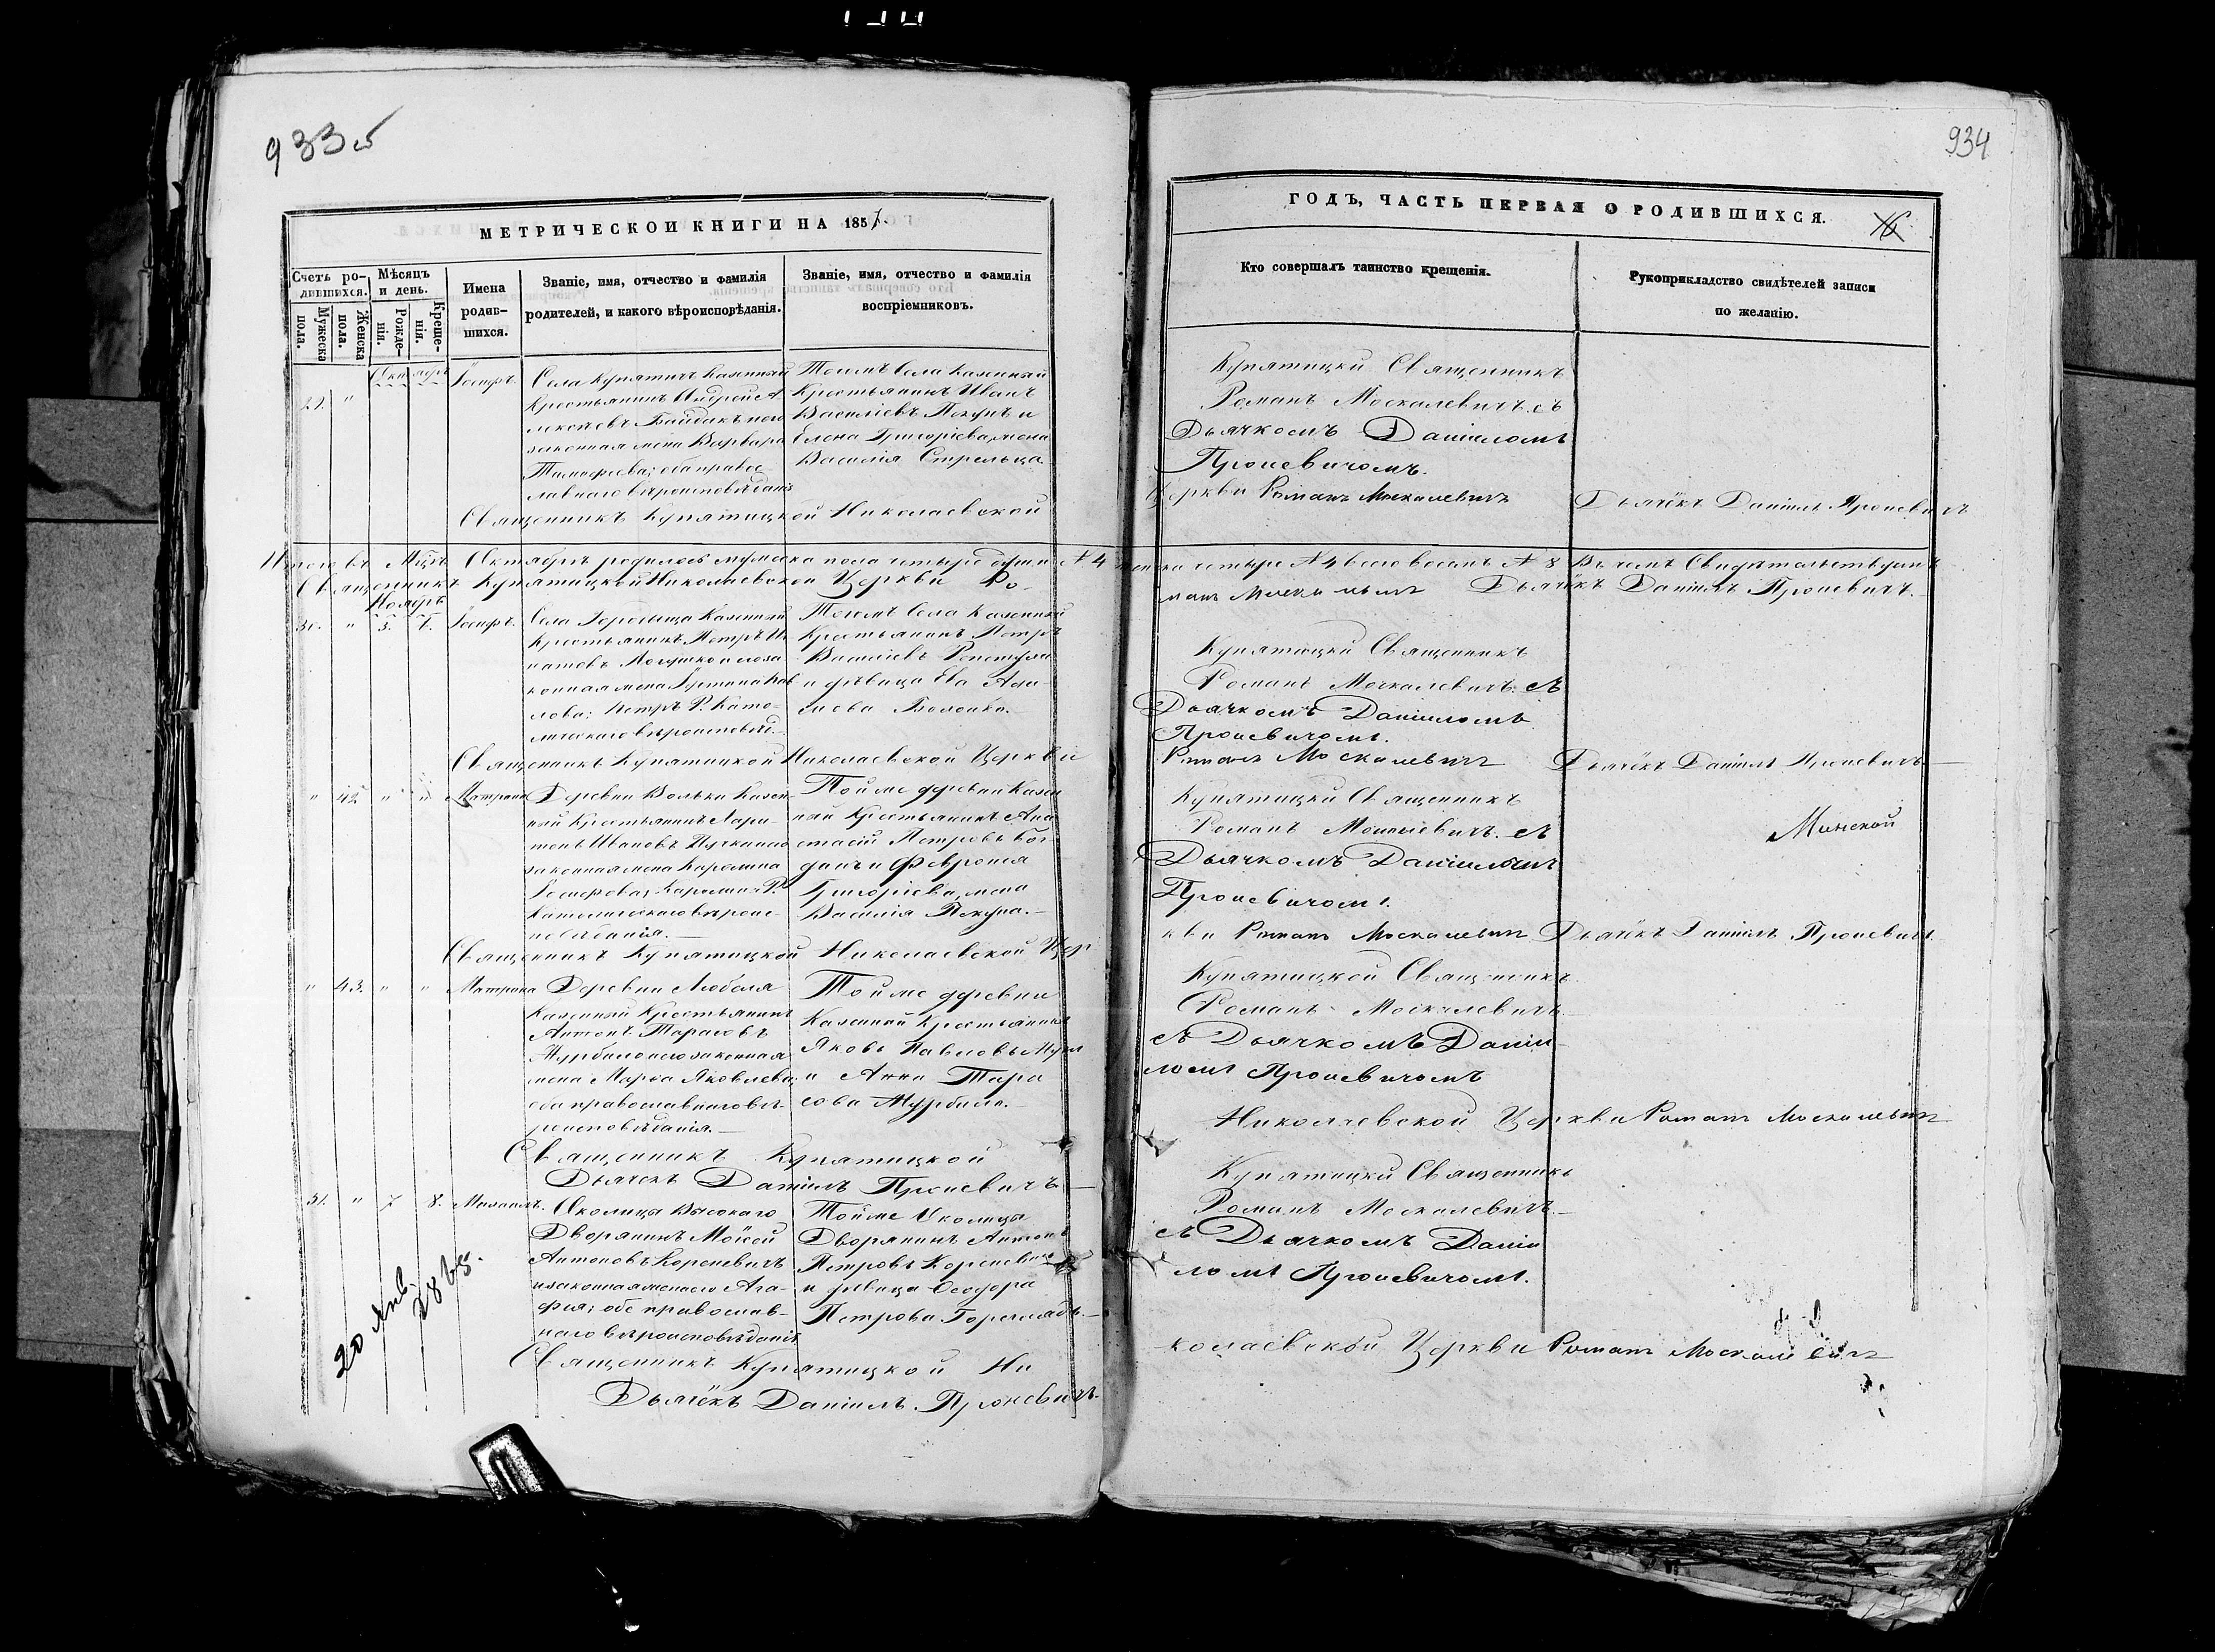 933 об
934
МЕТРИЧЕСКОЙ КНИГИ НА 1857.
ГОДЪ, ЧАСТЬ ПЕРВАЯ О РОДИВШИХСЯ.
Счетъ ро-
дившихся.
Мужеска
пола.
Женска
пола.
Мѣсяцъ
и день.
Рожде-
нія.
Креще-
нія.
Имена
родив-
шихся.
Званіе, имя, отчество и фамилія
родителей, и какого вѣроисповѣданія.
Званіе, имя, отчество и фамилія
воспріемниковъ.
Кто совершалъ таинство крещенія.
Рукоприкладство свидѣтелей записи
по желанію.
Октябрь
29. " Іосифъ.
Села Купятичъ Казенный
Крестьянинъ Андрей А
лексѣевъ Байдакъ и его
законная жена Варвара
Тимофеева; оба правос-
лавнаго вѣроисповѣданія
Тогожъ Села Казенный
Крестьянинъ Иванъ
Василіевъ Пекунъ и
Елена Григоріева, жена
Василія Стрельца.
Купятицкій Священникъ
Романъ Москалевичъ. съ
Дьячкомъ Даніиломъ
Проневичомъ.
Священникъ Купятицкой Николаевской
Церкви Романъ Москалевичъ
Дьячёкъ Даніилъ Проневичъ
Итого въ Мцѣ Октябрѣ родилось мужеска пола четыре души № 4
женска четыре № 4 всего восемъ № 8 Въ чемъ Свидѣтельствуемъ
Священникъ Купятицкой Николаевской Церкви Ро-
манъ Москалевичъ Дьячёкъ Даніилъ Проневичъ.
Ноябрь
30. " 3. Іосифъ.
Села Городища Казенный
Крестьянинъ Петръ Иг
натовъ и его за
конная жена Пав
лова; Петръ Р. Като-
лическаго вѣроисповѣд.
Тогожъ Села Казенный
Крестьянинъ Петръ
Василіевъ
и дѣвица Ева
Купятицкій Священникъ
Романъ Москалевичъ. съ
Дьячкомъ Даніиломъ
Проневичомъ.
Священникъ Купятицкой Николаевской Церкви
Романъ Москалевичъ
Дьячёкъ Даніилъ Проневичъ
" 42 " " Матрона
Деревни Вольки Казен-
ный Крестьянинъ Хари-
тонъ Ивановъ и его
законная жена Каролина
Іосифова; Каролина Р.
Католическаго вѣроис-
повѣданія.
Той же деревни Казен
ный Крестьянинъ Ана
стасій Петровъ Бог
данъ и Февронія
Григоріева, жена
Василія Пекуна.
Купятицкій Священникъ
Романъ Москалевичъ. съ
Дьячкомъ Даніиломъ
Проневичомъ.
Минской
Священникъ Купятицкой Николаевской Цер
кви Романъ Москалевичъ Дьячёкъ Даніилъ Проневичъ.
" 43. " " Матрона
Деревни Любеля
Казенный Крестьянинъ
Антонъ Тарасовъ
Журбило и его законная
жена Марѳа Яковлева;
оба православнаго вѣ-
роисповѣданія.
Той же деревни
Казенный Крестьянинъ
Яковъ Павловъ
и Анна Тара
сова Журбило.
Купятицкой Священникъ
Романъ Москалевичъ
съ Дьячкомъ Даніи-
ломъ Проневичомъ
Священникъ Купятицкой
Николаевской Церкви Романъ Москалевичъ
Дьячекъ Даніилъ Проневичъ
31. " 7 8. Михаилъ.
Околица Высокаго
Дворянинъ Мойсей
Антоновъ Кореневичъ
и законная жена его Ага-
фія; обе православ-
наго вѣроисповѣданія
Той же Околицы
Дворянинъ Антонъ
Петровъ Кореневичъ
и дѣвица Ѳеодора
Петрова
Купятицкій Священникъ
Романъ Москалевичъ.
съ Дьячкомъ Даніи
ломъ Проневичомъ.
20 янв.
1865.
Священникъ Купятицкой Ни
колаевской Церкви Романъ Москалевичъ
Дьячёкъ Даніилъ Проневичъ.